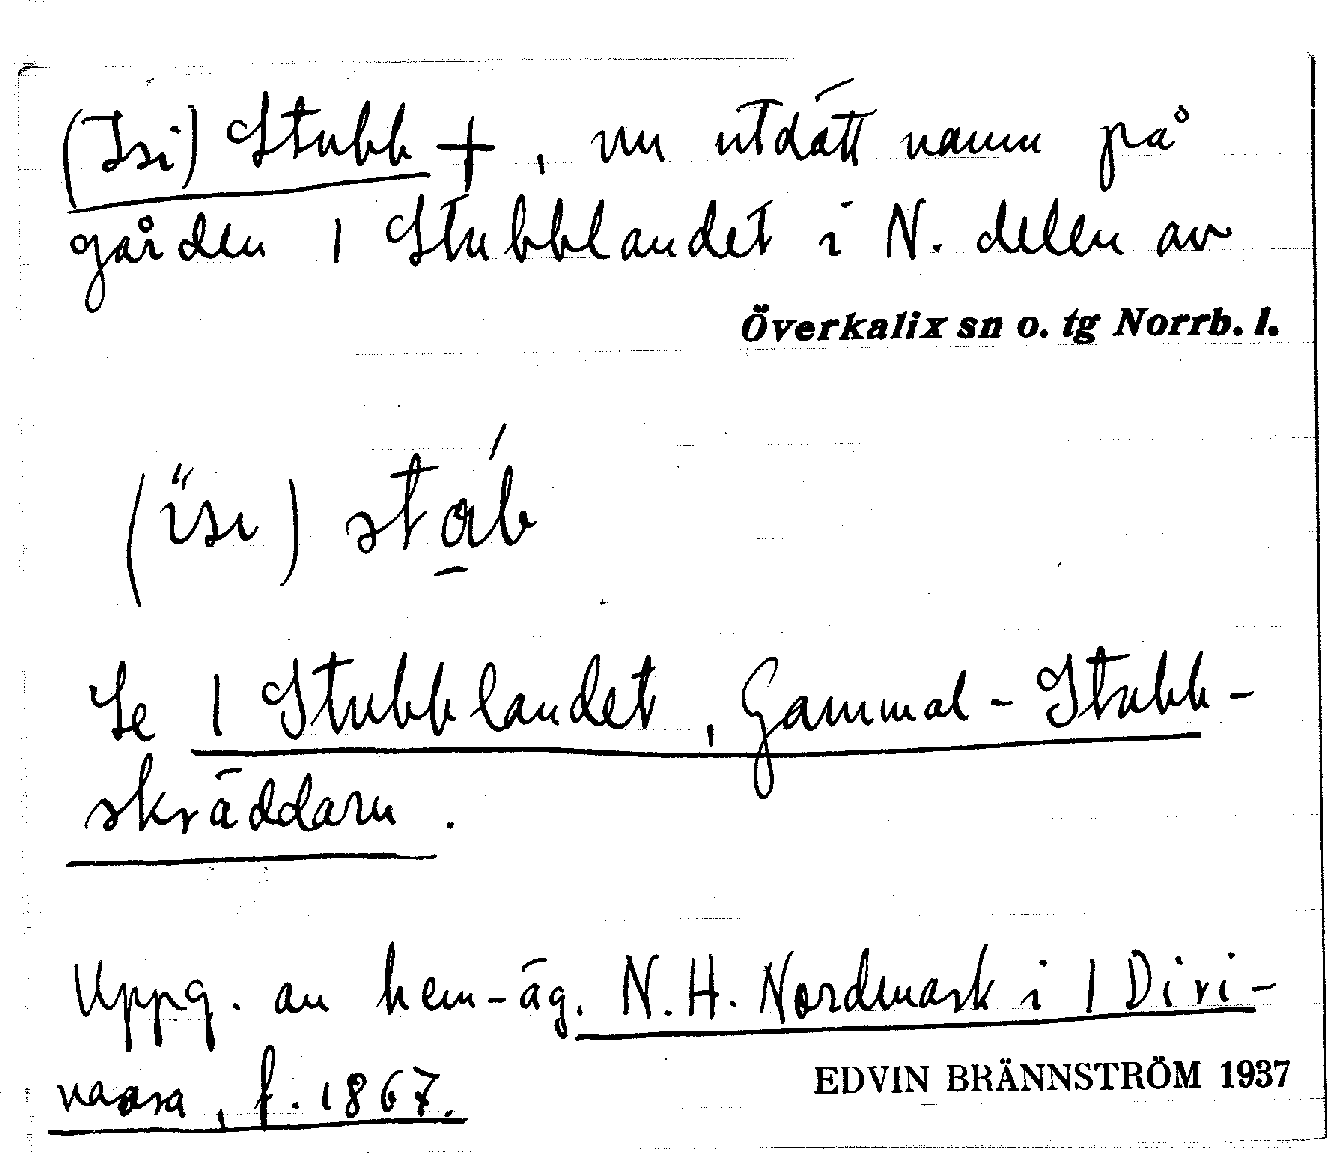 (Isi) Stubb +, nu utdött namn på
gården 1 Stubblandet i N. delen av
Överkalix sn o. tg Norrb. l.
(ïsı) stáb
Se 1 Stubblandet, Gammal-Stubb-
skräddarn.
Uppg. av hem-äg. N.H. Nordmark i 1 Divi-
vaara, f. 1867.
EDVIN BRÄNNSTRÖM 1937